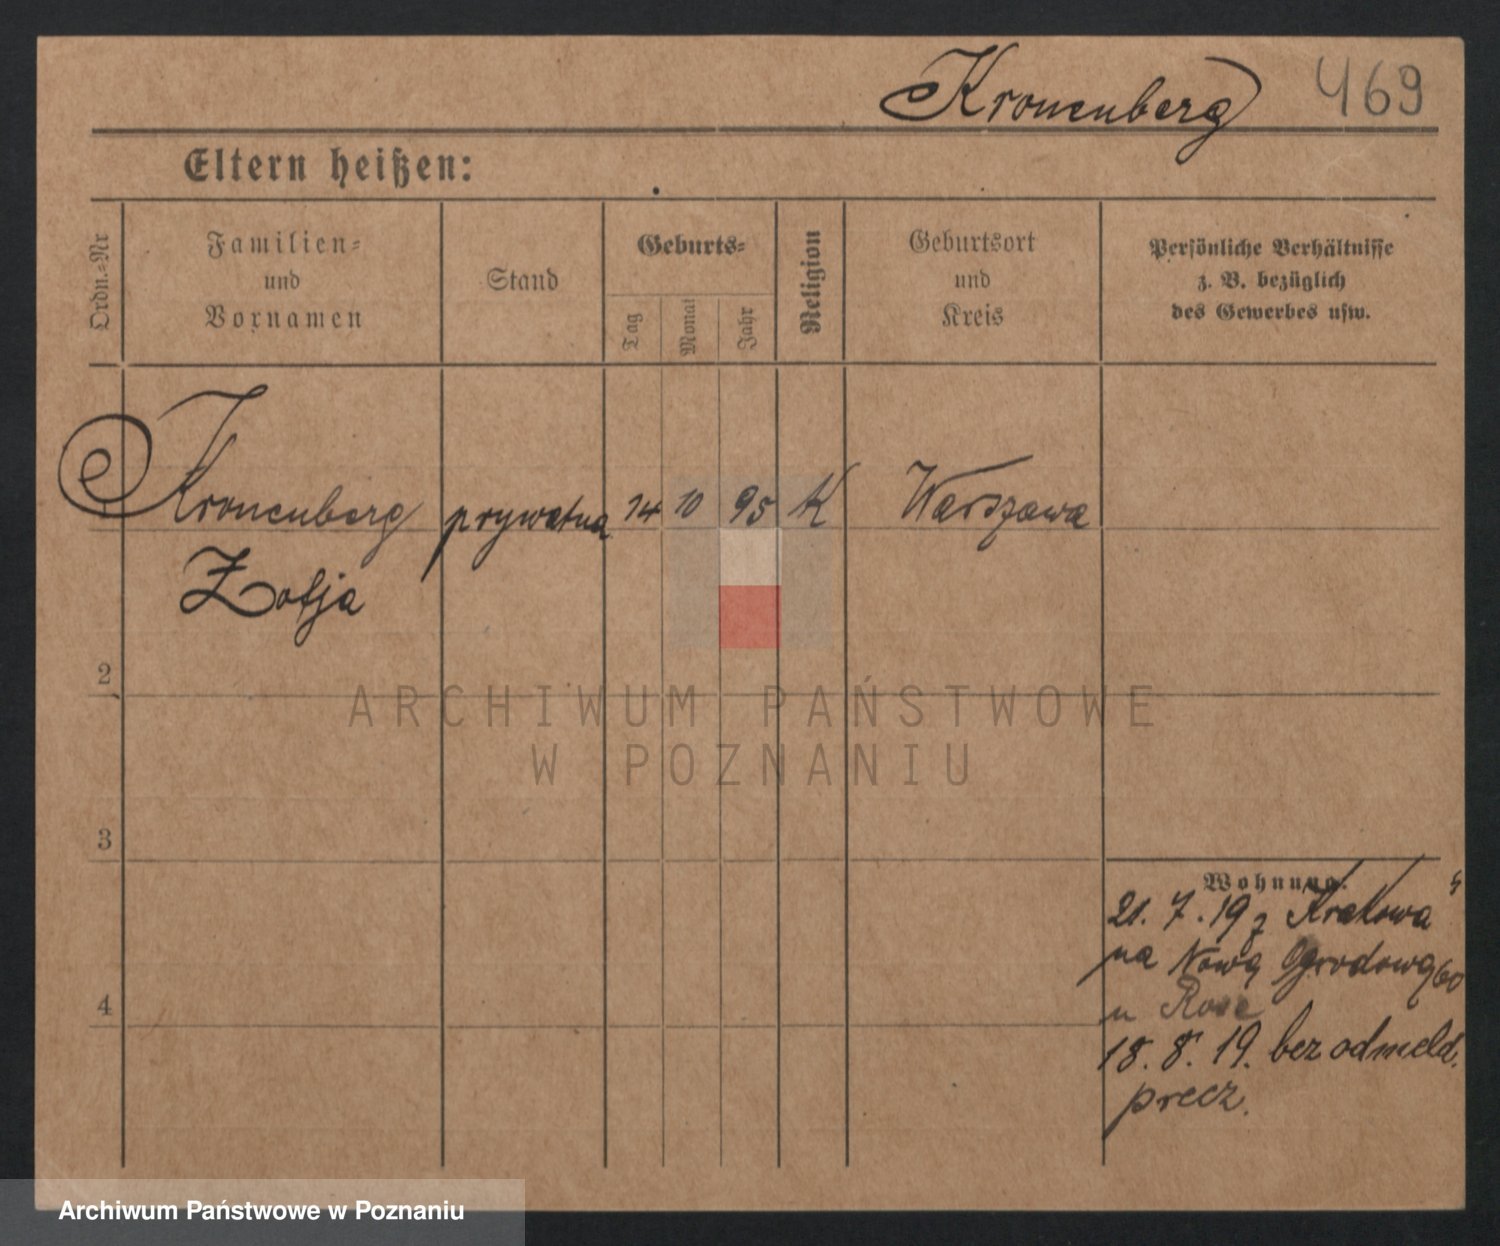 Kronenberg 469
Eltern heißen:
Ordn.=Nr
Familien=
und
Vornamen
Stand
Geburts=
Tag
Monat
Jahr
Religion
Geburtsort
und
Kreis
Persönliche Verhältnisse
z. B. bezüglich
des Gewerbes usw.
Kronenberg prywatna 14 10 95 K Warszawa
Zofja
2
3
4
Wohnung:
21. 7. 19 z Krakowa
na Nową Ogrodową 60
u Rose
18. 8. 19. bez odmeld.
precz.
ARCHIWUM PAŃSTWOWE
W POZNANIU
Archiwum Państwowe w Poznaniu